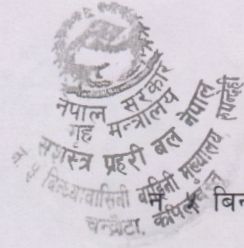 नेपाल सरकार
गृह मन्त्रालय
सशस्त्र प्रहरी बल नेपाल
नं ५ बिन्ध्यवासिनी वाहिनी मुख्यालय रुपन्देही
चन्द्रौटा, कपिलवस्तु
नं ५ बिन